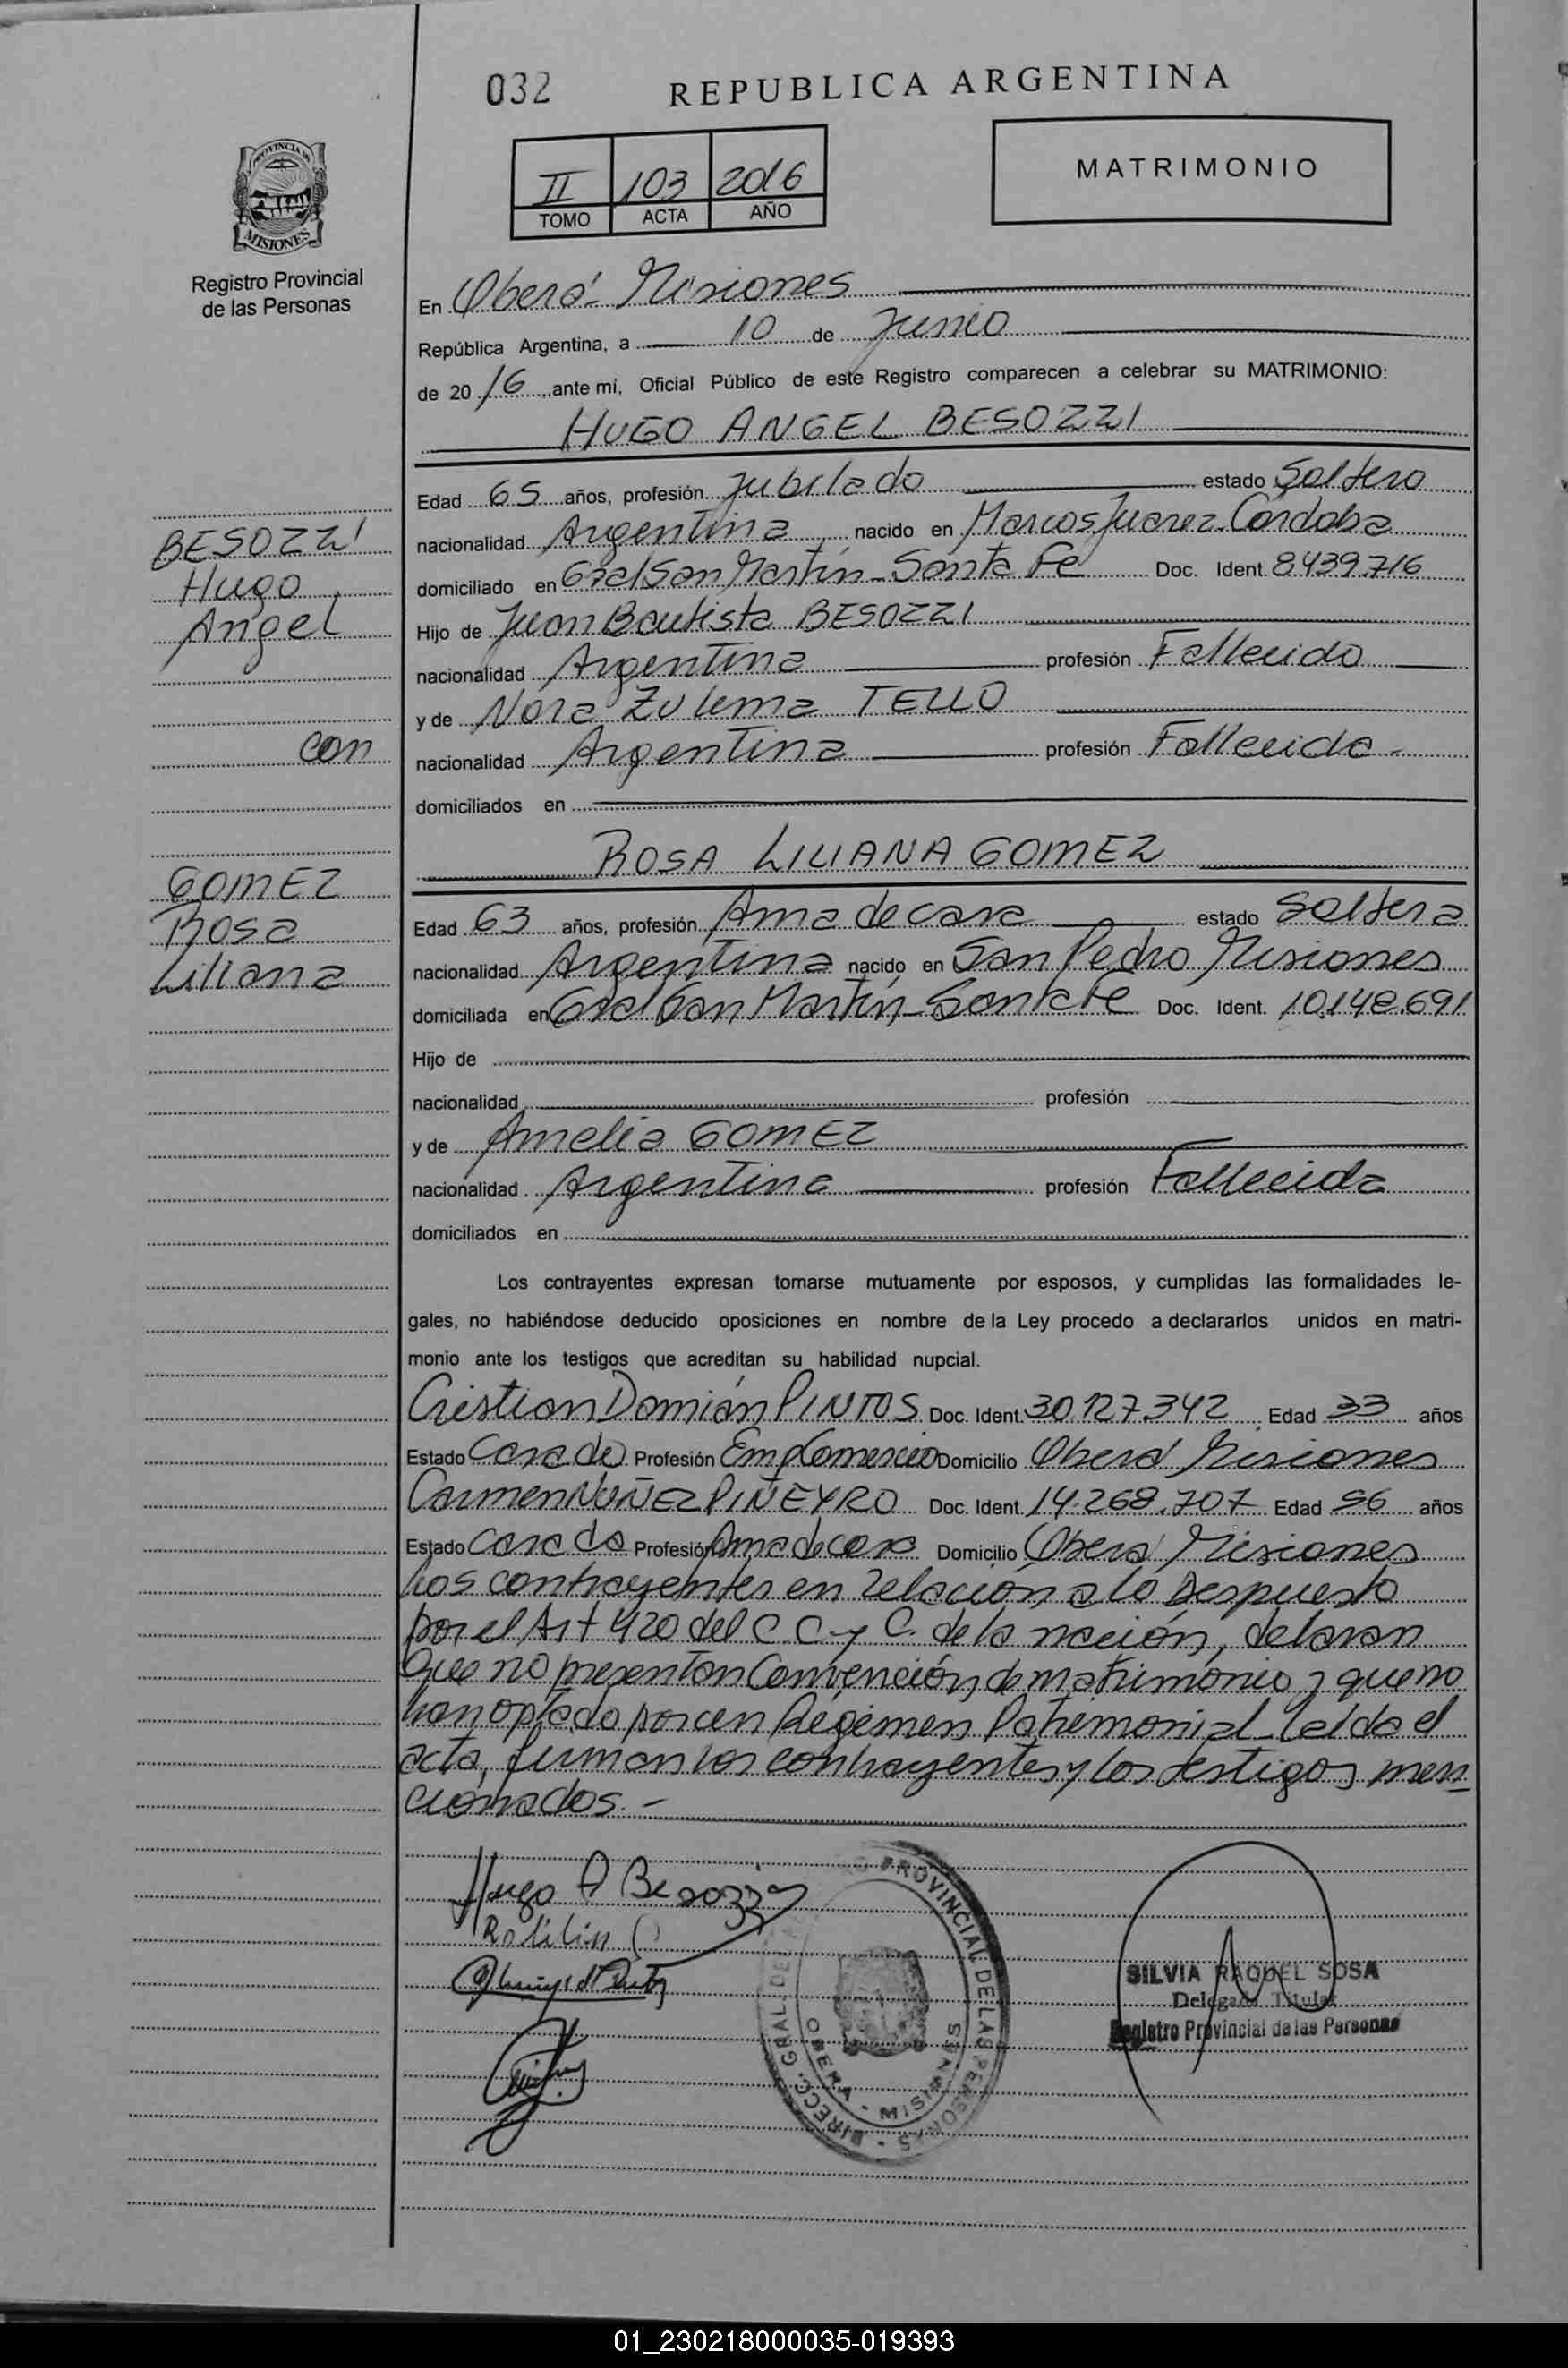 032 REPUBLICA ARGENTINA
PROVINCIA DE
MISIONES
Registro Provincial
de las Personas
II 103 2016
TOMO ACTA AÑO
MATRIMONIO
En Oberá - Misiones
República Argentina, a 10 de Junio
de 2016, ante mí, Oficial Público de este Registro comparecen a celebrar su MATRIMONIO:
HUGO ANGEL BESOZZI
BESOZZI
Hugo
Angel
con
GOMEZ
Rosa
Liliana
Edad 65 años, profesión Jubilado estado Soltero
nacionalidad Argentina nacido en Marcos Juarez-Córdoba
domiciliado en Gral San Martín - Santa Fe Doc. Ident. 8.439.716
Hijo de Juan Bautista BESOZZI
nacionalidad Argentina profesión Fallecido
y de Nora Zulema TELLO
nacionalidad Argentina profesión Fallecida
domiciliados en
ROSA LILIANA GOMEZ
Edad 63 años, profesión Ama de casa estado Soltera
nacionalidad Argentina nacido en San Pedro Misiones
domiciliada en Gral San Martín - Santa Fe Doc. Ident. 10.148.691
Hijo de
nacionalidad profesión
y de Amelia GOMEZ
nacionalidad Argentina profesión Fallecida
domiciliados en
Los contrayentes expresan tomarse mutuamente por esposos, y cumplidas las formalidades le-
gales, no habiéndose deducido oposiciones en nombre de la Ley procedo a declararlos unidos en matri-
monio ante los testigos que acreditan su habilidad nupcial.
Cristian Damián PINTOS Doc. Ident. 30.127.342 Edad 33 años
Estado Casado Profesión Emp Comercio Domicilio Oberá Misiones
Carmen NUÑEZ PIÑEYRO Doc. Ident. 14.268.707 Edad 56 años
Estado Casada Profesión Ama de casa Domicilio Oberá Misiones
Los contrayentes en relación a lo
por el Art 420 del C. C y C. de la nación, delaran
que no presentan Convención de matrimonio y que no
han optado por un Régimen Patrimonial. Leída el
acta, firman los contrayentes y los testigos men
cionados.-
Hugo A Besozzi
DIRECC. GRAL. DEL PROVINCIAL DE LAS PERSONAS
OBERA - MISIONES
SILVIA RAQUEL SOSA
Delegada Titular
Registro Provincial de las Personas
01_230218000035-019393